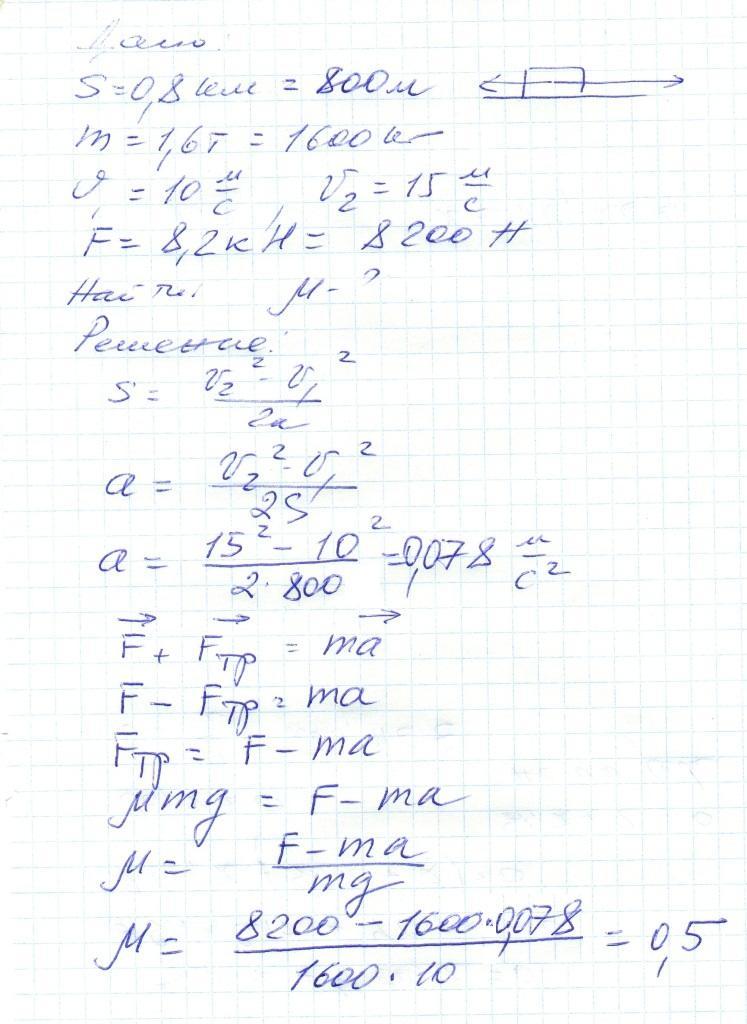 Дано:
S = 0,8 км = 800 м
m = 1,6 т = 1600 кг
υ₁ = 10 м/с, υ₂ = 15 м/с
F = 8,2 кН = 8200 Н
Найти: μ - ?
Решение:
S = (υ₂² - υ₁²)/2a
a = (υ₂² - υ₁²)/2S
a = (15² - 10²)/(2·800) = 0,078 м/с²
F⃗ + F⃗тр = ma⃗
F - Fтр = ma
Fтр = F - ma
μmg = F - ma
μ = (F - ma)/mg
μ = (8200 - 1600·0,078)/(1600·10) = 0,5